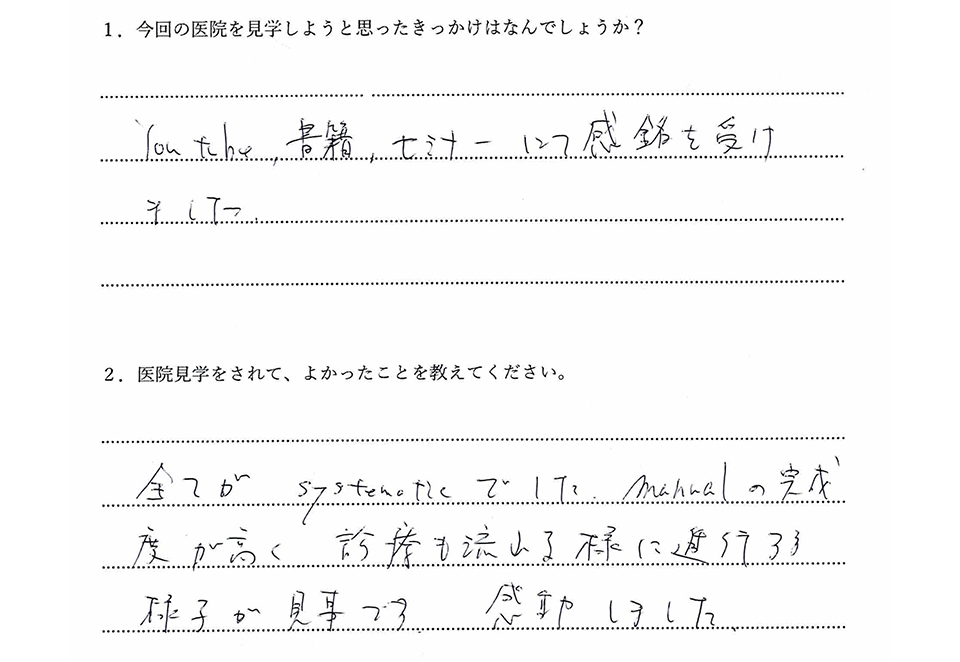 1．今回の医院を見学しようと思ったきっかけはなんでしょうか？
Youtube，書籍，セミナーにて感銘を受け
ました。
2．医院見学をされて、よかったことを教えてください。
全てが systematicでした。manualの完成
度が高く 診療も流れる様に進行する
様子が見事です 感動しました。